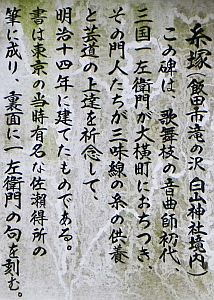 糸塚(飯田市滝の沢 白山神社境内)
この碑は、歌舞伎の音曲師初代、
三国一左衛門が大横町におちつき、
その門人たちが三味線の糸の供養
と芸道の上達を祈念して、
明治十四年に建てたものである。
書は東京の当時有名な佐瀬得所の
筆に成り、裏面に一左衛門の句を刻む。